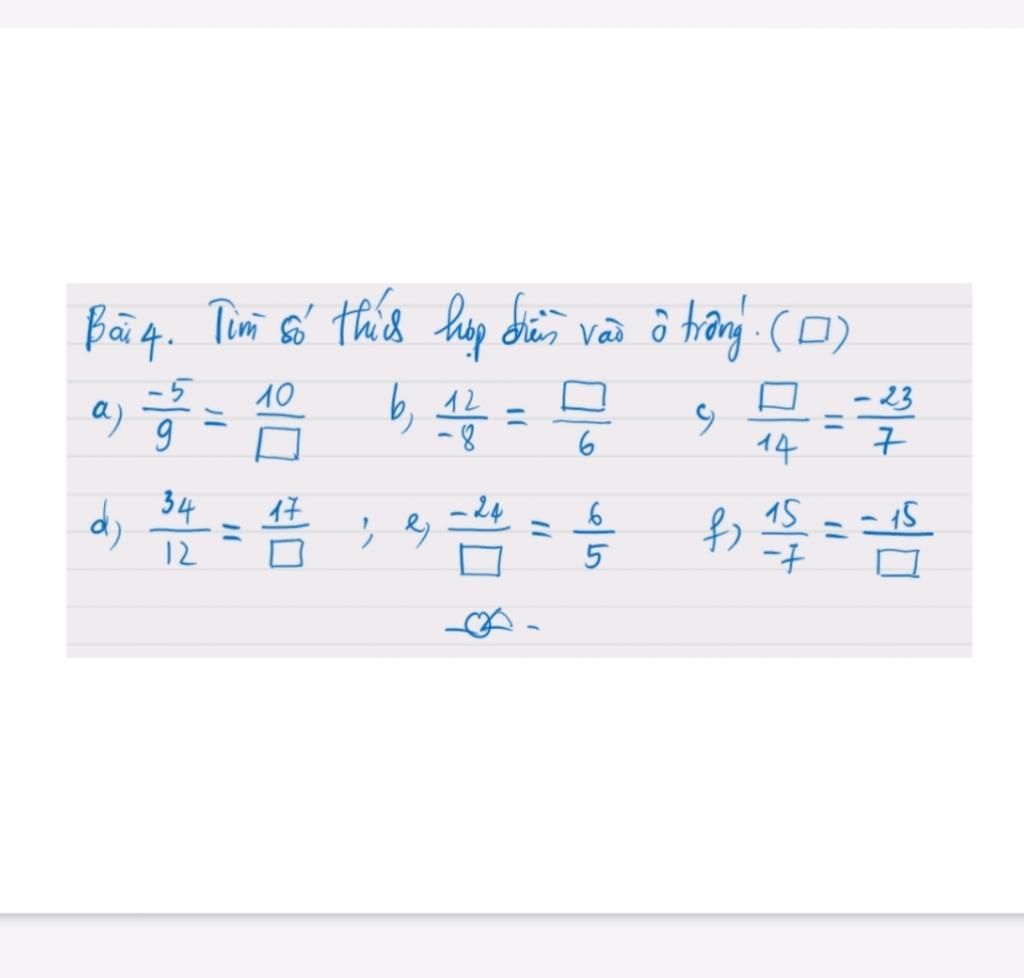 Bài 4. Tìm số thích hợp điền vào ô trống. (□)
a) -5/9 = 10/□ b, 12/-8 = □/6 c, □/14 = -23/7
d, 34/12 = 17/□ ; e, -24/□ = 6/5 f, 15/-7 = -15/□